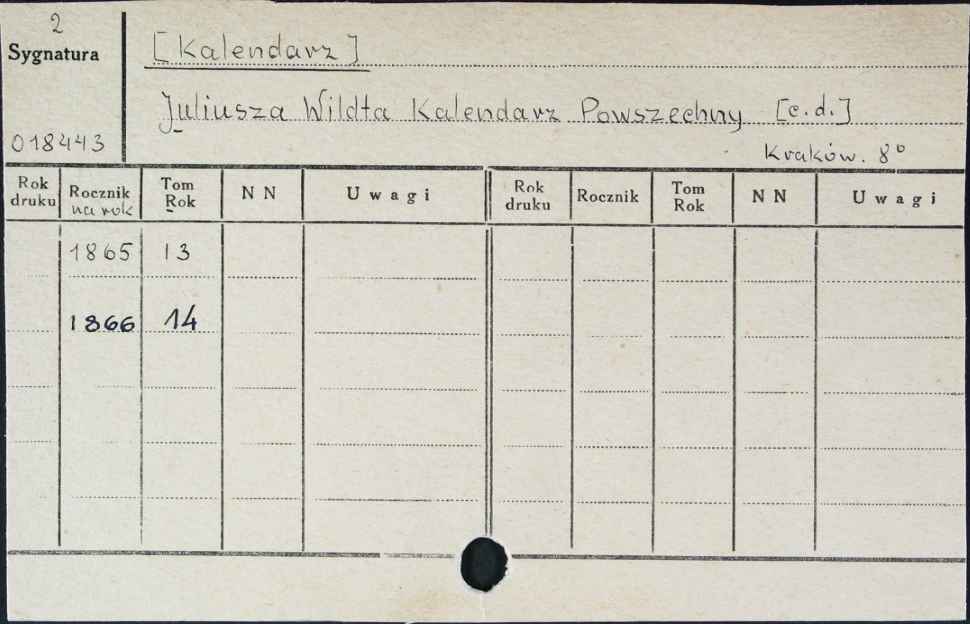 2
Sygnatura
[Kalendarz]
Juliusza Wildta Kalendarz Powszechny [c.d.]
018443
Kraków. 8°
Rok druku Rocznik na rok Tom Rok NN Uwagi Rok druku Rocznik Tom Rok NN Uwagi
1865 13
1866 14